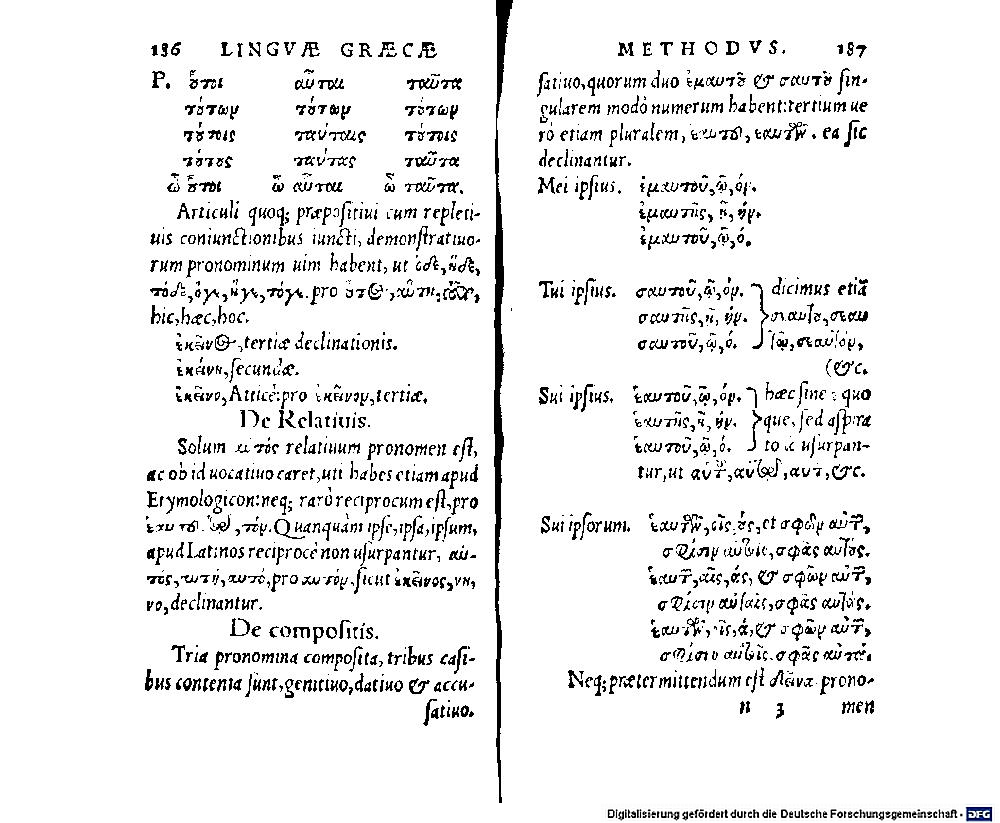 186 LINGVÆ GRÆCÆ
P. οὗτοι αὗται ταῦτα
τούτων τούτων τούτων
τούτοις ταύταις τούτοις
τούτους ταύτας ταῦτα
ὦ οὗτοι ὦ αὗται ὦ ταῦτα.
Articuli quoq; præpositiui cum repleti-
uis coniunctionibus iuncti, demonstratiuo-
rum pronominum uim habent, ut ὅδε, ἥδε,
τόδε, ὅγε, ἥγε, τόγε. pro οὗτος, αὕτη,
hic, hæc, hoc.
ἐκεῖνος, tertiæ declinationis.
ἐκείνη, secundæ.
ἐκεῖνο, Atticè: pro ἐκεῖνον, tertiæ.
De Relatiuis.
Solum αὐτός relatiuum pronomen est,
ac ob id uocatiuo caret, uti habes etiam apud
Etymologicon: neq; rarò reciprocum est, pro
ἑαυτοῦ. Quanquàm ipse, ipsa, ipsum,
apud Latinos reciprocè non usurpantur, αὐ-
τός, αὐτή, αὐτό, pro αὐτόν. sicut ἐκεῖνος, νη,
νο, declinantur.
De compositis.
Tria pronomina composita, tribus casi-
bus contenta sunt, genitiuo, datiuo & accu-
satiuo.
METHODVS. 187
satiuo, quorum duo ἐμαυτοῦ & σαυτοῦ sin-
gularem modò numerum habent: tertium ue
rò etiam pluralem, ἑαυτοῦ, ἑαυτῶν. ea sic
declinantur.
Mei ipsius. ἐμαυτοῦ, ῷ, όν.
ἐμαυτῆς, ῇ, ήν.
ἐμαυτοῦ, ῷ, ό.
Tui ipsius. σαυτοῦ, ῷ, όν. dicimus etiã
σαυτῆς, ῇ, ήν. σεαυτοῦ, σεαυ
σαυτοῦ, ῷ, ό. τῷ, σεαυτόν,
(&c.
Sui ipsius. ἑαυτοῦ, ῷ, όν. hæc sine quo
ἑαυτῆς, ῇ, ήν. que, sed aspira
ἑαυτοῦ, ῷ, ό. to usurpan-
tur, ut αὑτοῦ, &c.
Sui ipsorum. ἑαυτῶν, οῖς, ούς, et σφῶν αὐτῶν,
σφίσιν αὐτοῖς, σφᾶς αὐτούς.
ἑαυτῶν, αῖς, άς, & σφῶν αὐτῶν,
σφίσιν αὐταῖς, σφᾶς αὐτάς.
ἑαυτῶν, οῖς, ά, & σφῶν αὐτῶν,
σφίσιν αὐτοῖς. σφᾶς αὐτά.
Neq; prætermittendum est δεῖνα prono-
n 3 men
Digitalisierung gefördert durch die Deutsche Forschungsgemeinschaft - DFG